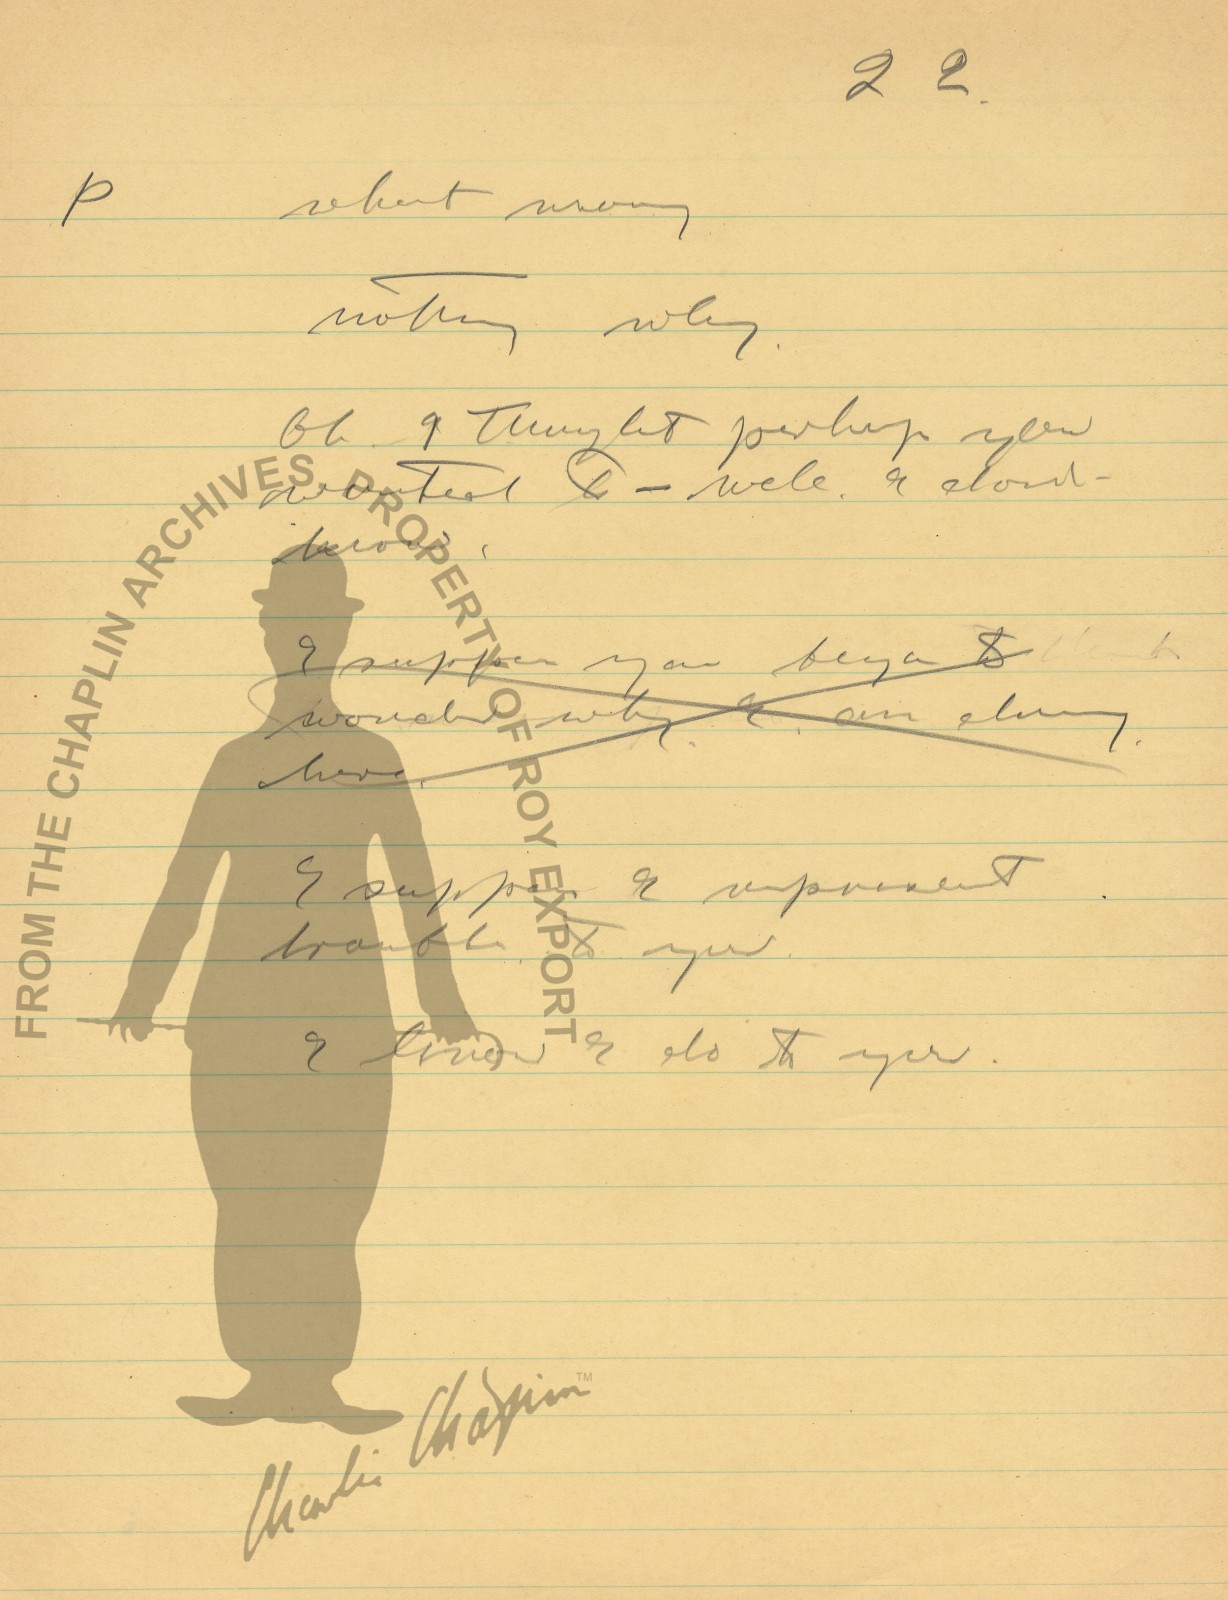 22.
P what wrong
nothing why.
Oh I thought perhap you
wanted to - well. I dont-
know.
I suppose you begin to think
wonder why. I am doing.
here.
I suppose I represent.
trouble. to you.
I know I do to you.
FROM THE CHAPLIN ARCHIVES. PROPERTY OF ROY EXPORT
Charlie Chaplin™